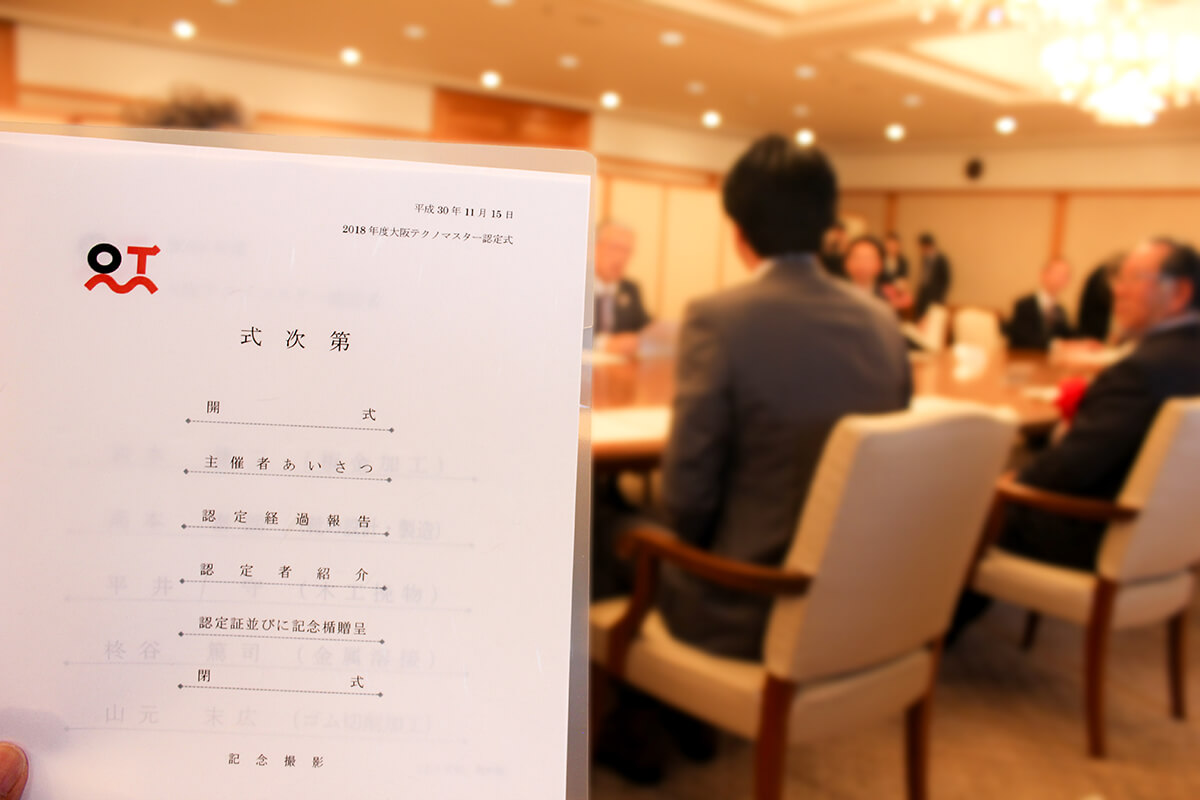 平成30年11月15日
2018年度大阪テクノマスター認定式
OT
式次第
開式
主催者あいさつ
認定経過報告
認定者紹介
認定証並びに記念楯贈呈
閉式
記念撮影